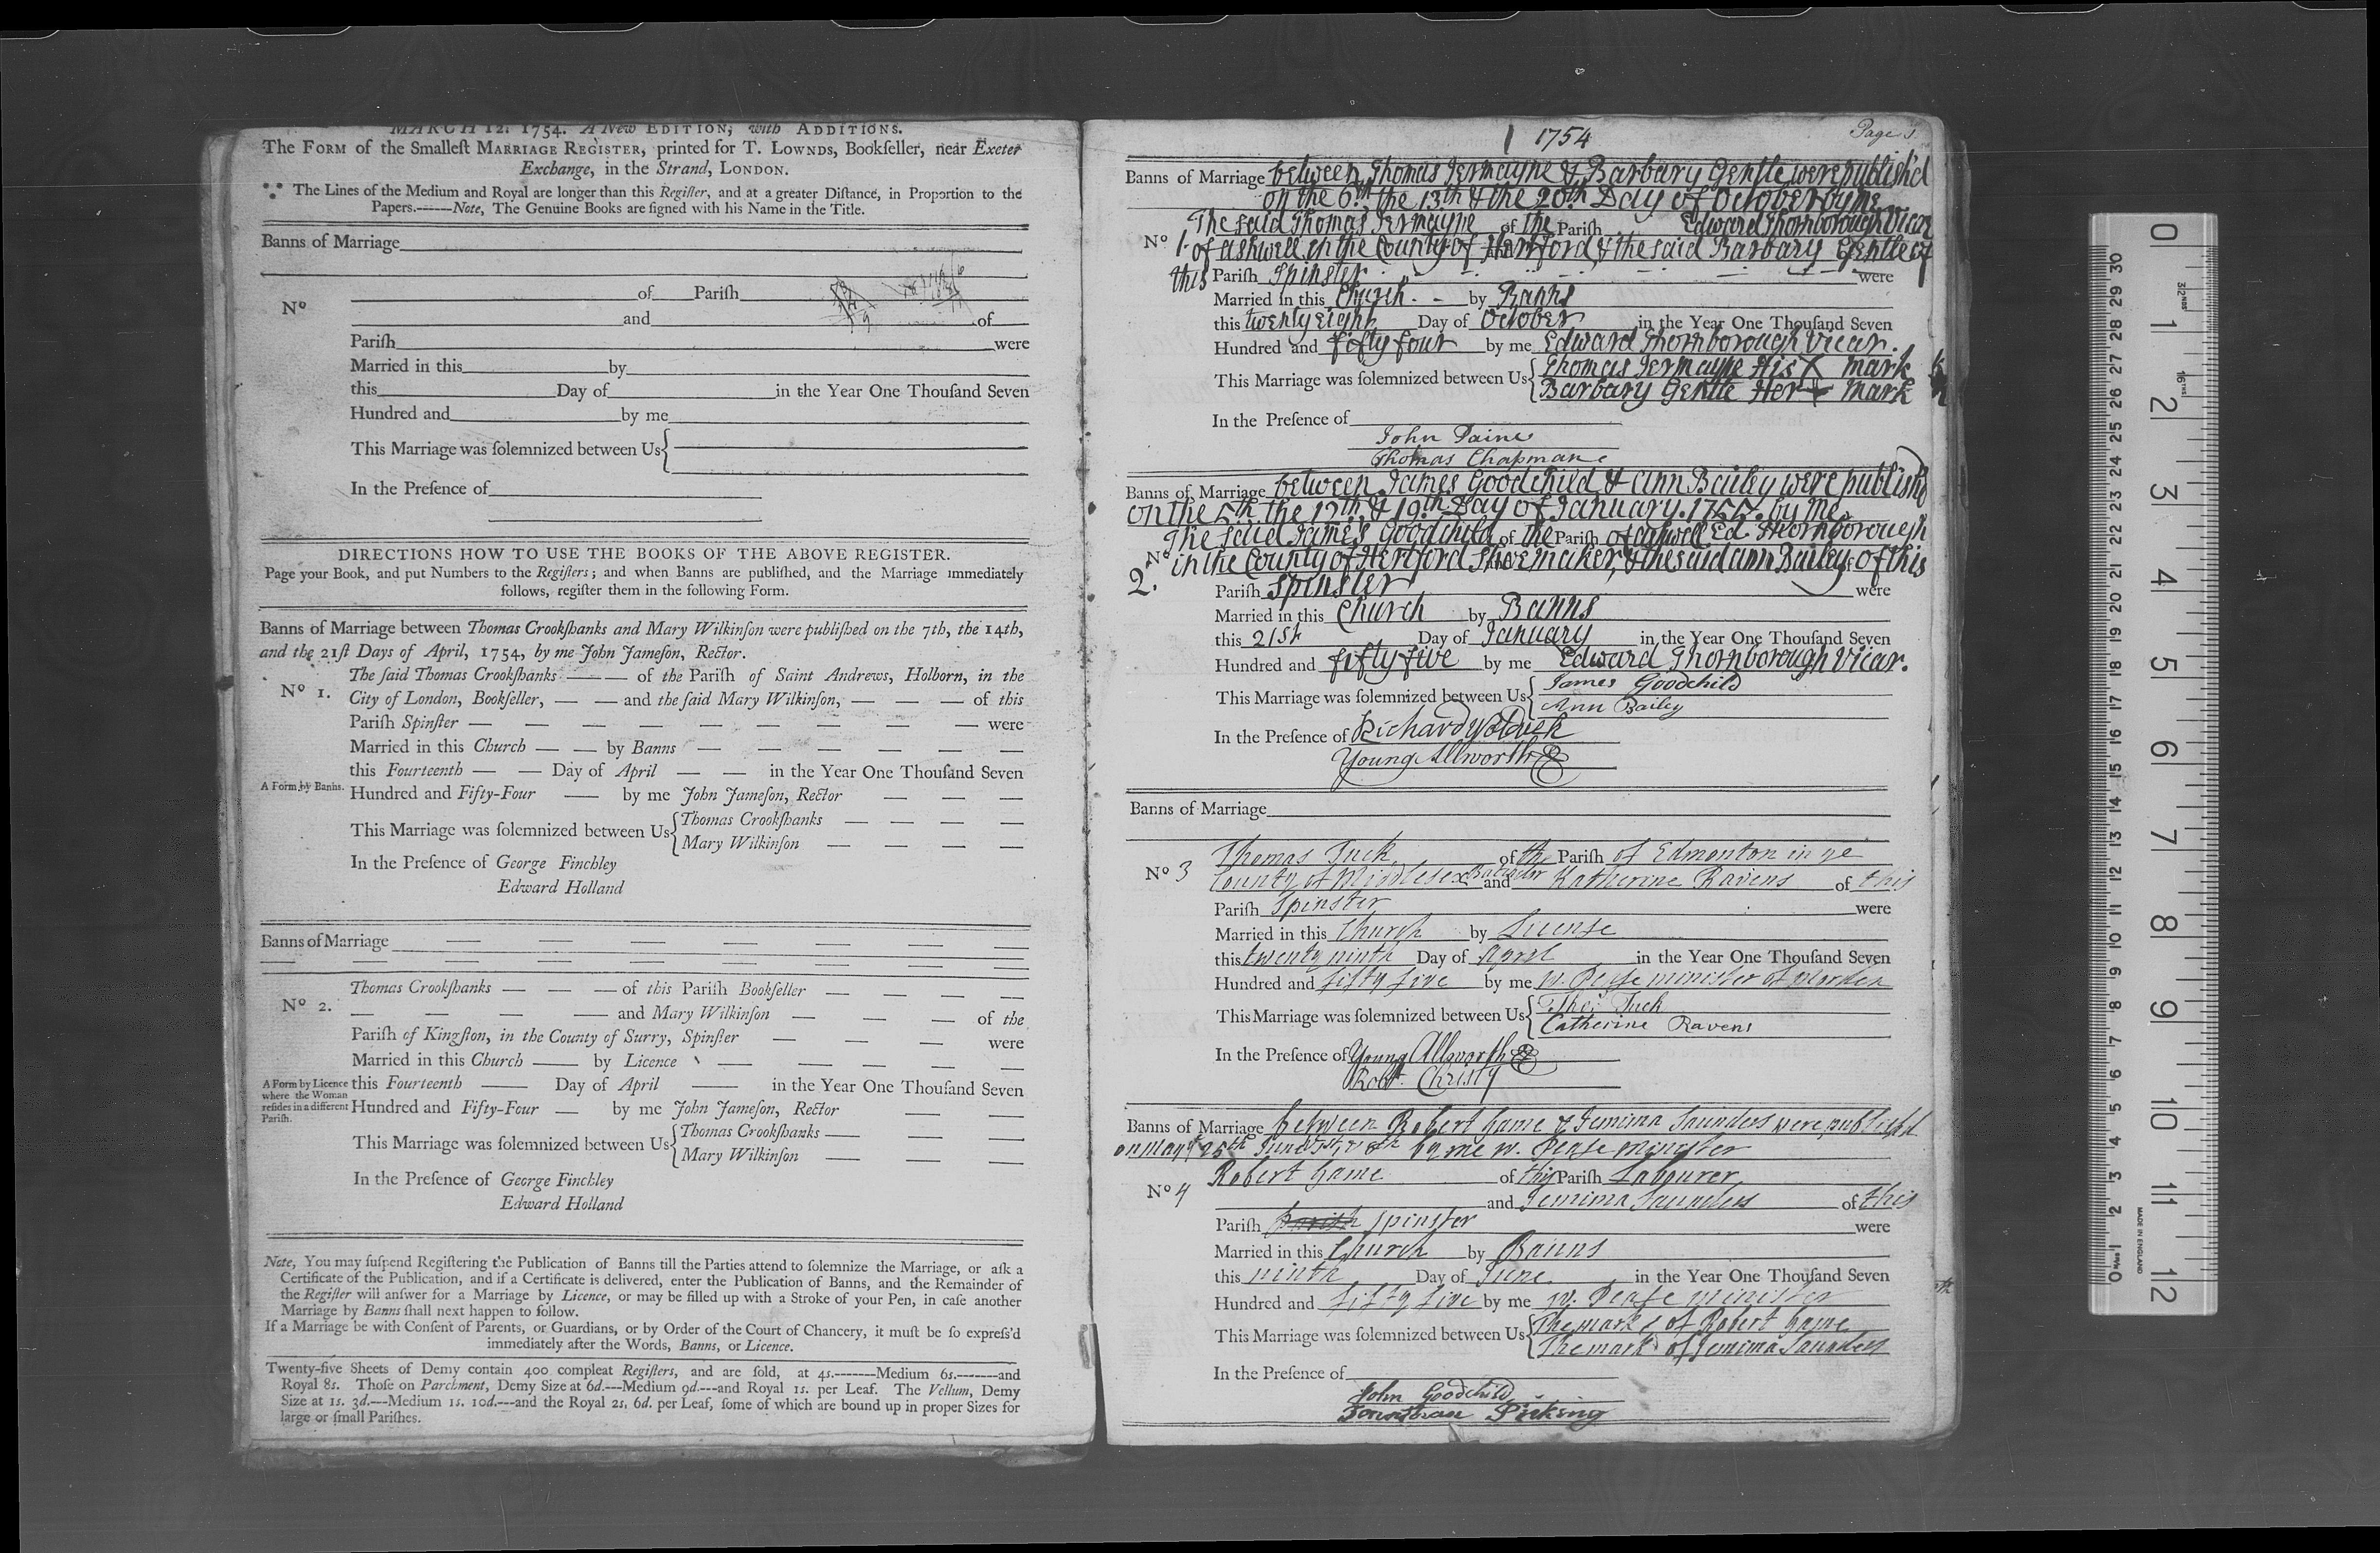 MARCH 12. 1754. A New EDITION, with ADDITIONS.
The FORM of the Smalleſt MARRIAGE REGISTER, printed for T. LOWNDS, Bookſeller, near Exeter
Exchange, in the Strand, LONDON.
The Lines of the Medium and Royal are longer than this Regiſter, and at a greater Diſtance, in Proportion to the
Papers.------Note, The Genuine Books are ſigned with his Name in the Title.
Banns of Marriage
of Parish
No
and of
Pariſh were
Married in this by
this Day of in the Year One Thouſand Seven
Hundred and by me
This Marriage was ſolemnized between Us
In the Preſence of
DIRECTIONS HOW TO USE THE BOOKS OF THE ABOVE REGISTER.
Page your Book, and put Numbers to the Regiſters; and when Banns are publiſhed, and the Marriage immediately
follows, regiſter them in the following Form.
Banns of Marriage between Thomas Crookſhanks and Mary Wilkinſon were publiſhed on the 7th, the 14th,
and the 21ſt Days of April, 1754, by me John Jameſon, Rector.
The ſaid Thomas Crookſhanks — — of the Pariſh of Saint Andrews, Holborn, in the
No 1.
City of London, Bookſeller, — — and the ſaid Mary Wilkinſon, — — — of this
Pariſh Spinſter — — — — — — — — — were
Married in this Church — — by Banns — — — — — —
this Fourteenth — — Day of April — — in the Year One Thouſand Seven
A Form by Banns.
Hundred and Fifty-Four — by me John Jameſon, Rector — — —
This Marriage was ſolemnized between Us { Thomas Crookſhanks — — — —
Mary Wilkinſon — — — —
In the Preſence of George Finchley
Edward Holland
Banns of Marriage — — — — — — —
Thomas Crookſhanks — — — of this Pariſh Bookſeller — — — —
No 2.
— — — — and Mary Wilkinſon — — — of the
Pariſh of Kingſton, in the County of Surry, Spinſter — — — were
Married in this Church — by Licence — — — — —
A Form by Licence
where the Woman
reſides in a different
Pariſh.
this Fourteenth — Day of April — in the Year One Thouſand Seven
Hundred and Fifty-Four — by me John Jameſon, Rector — —
This Marriage was ſolemnized between Us { Thomas Crookſhanks — — —
Mary Wilkinſon — — —
In the Preſence of George Finchley
Edward Holland
Note, You may ſuſpend Regiſtering the Publication of Banns till the Parties attend to ſolemnize the Marriage, or aſk a
Certificate of the Publication, and if a Certificate is delivered, enter the Publication of Banns, and the Remainder of
the Regiſter will anſwer for a Marriage by Licence, or may be filled up with a Stroke of your Pen, in caſe another
Marriage by Banns ſhall next happen to follow.
If a Marriage be with Conſent of Parents, or Guardians, or by Order of the Court of Chancery, it muſt be ſo expreſs'd
immediately after the Words, Banns, or Licence.
Twenty-five Sheets of Demy contain 400 compleat Regiſters, and are ſold, at 4s.-------Medium 6s.-------and
Royal 8s. Thoſe on Parchment, Demy Size at 6d.---Medium 9d.---and Royal 1s. per Leaf. The Vellum, Demy
Size at 1s. 3d.---Medium 1s. 10d.---and the Royal 2s, 6d. per Leaf, ſome of which are bound up in proper Sizes for
large or ſmall Pariſhes.
1754
Page 1.
Banns of Marriage between Thomas Jermayne & Barbary Gentle were publish'd
on the 6th, the 13th & the 20th Day of October by me
The said Thomas Jermayne of the Pariſh Edward Thornborough Vicar
No 1. of Ashwell in the County of Hartford & the said Barbary Gentle of
this Pariſh Spinster were
Married in this Church by Banns
this twenty eight Day of October in the Year One Thouſand Seven
Hundred and fifty four by me Edward Thornborough Vicar.
This Marriage was ſolemnized between Us { Thomas Jermayne His X mark
Barbary Gentle Her + Mark
In the Preſence of
John Paine
Thomas Chapman
Banns of Marriage between James Goodchild & Ann Bailey were publishd
on the 5th, the 12th & 19th Day of January. 1755. by me
The said James Goodchild of the Pariſh of Ashwell Ed. Thornborough
No 2. in the County of Hertford Shoemaker, & the said Ann Bailey of this
Pariſh Spinster were
Married in this Church by Banns
this 21st Day of January in the Year One Thouſand Seven
Hundred and fifty five by me Edward Thornborough Vicar.
This Marriage was ſolemnized between Us { James Goodchild
Ann Bailey
In the Preſence of Richard
Young Allworth
Banns of Marriage
Thomas Tuck of the Pariſh of Edmonton in ye
No 3 County of Middlesex Batcheler and Katherine Ravens of this
Pariſh Spinster were
Married in this Church by License
this twenty ninth Day of April in the Year One Thouſand Seven
Hundred and fifty five by me W. Pease minister of
This Marriage was ſolemnized between Us { Tho: Tuck
Catherine Ravens
In the Preſence of Young Allworth
Robt. Christy
Banns of Marriage between Robert Game & Jemima Saunders were publishd
on May ye 25th June 1st, & 8th by me W. Pease minister
Robert Game of this Pariſh Labourer
No 4 and Jemima Saunders of this
Pariſh Parish Spinster were
Married in this Church by Banns
this ninth Day of June in the Year One Thouſand Seven
Hundred and fifty five by me W. Pease minister
This Marriage was ſolemnized between Us { The mark of Robert Game
The mark of Jemima Saunders
In the Preſence of
John Goodchild
Pickeing
0 1 2 3 4 5 6 7 8 9 10 11 12
32NDS
16THS
30 29 28 27 26 25 24 23 22 21 20 19 18 17 16 15 14 13 12 11 10 9 8 7 6 5 4 3 2 1 0
MADE IN ENGLAND